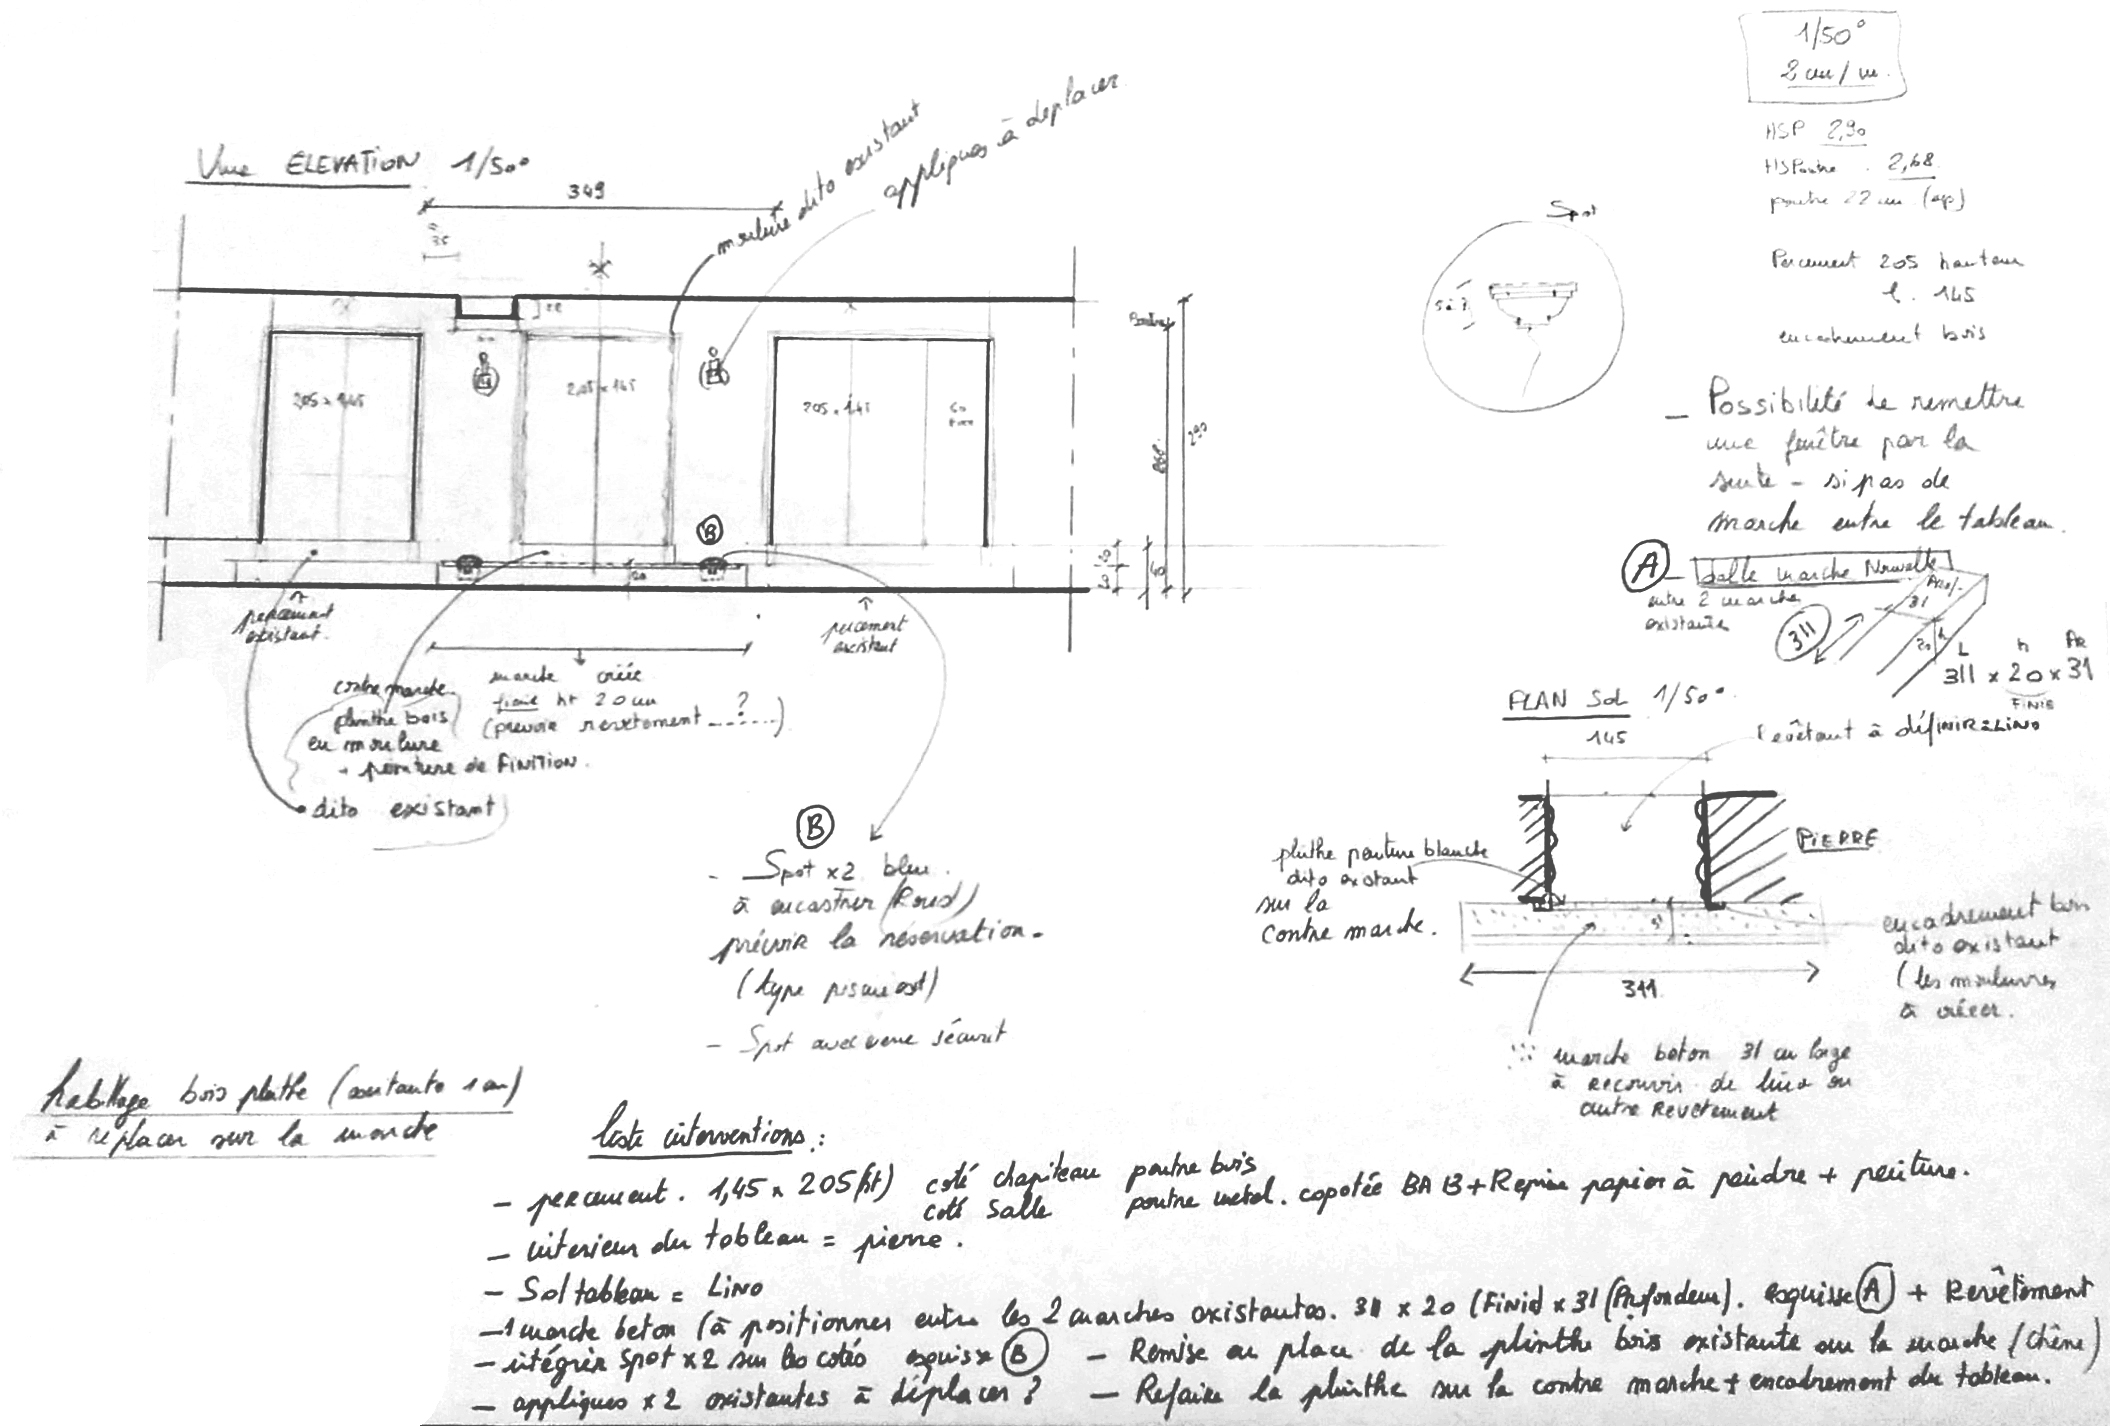 1/50°
2 cm/m.
HSP 2,90
HSPoutre . 2,68
poutre 22 cm (ep)
Percement 205 hauteur
l. 145
encadrement bois
Vue ELEVATION 1/50°
349
35
22
moulure dito existant
appliques à deplacer
Spot
5 à 7
Poutre
205 x 145
2,05 x 145
205 x 145
268
290
B
20
20
20
40
percement
existant.
percement
existant
marche créée
finie ht 20 cm
(prévoir revetement ...?...)
contre marche
plinthe bois
en moulure
+ peinture de FINITION.
dito existant
- Possibilité de remettre
une fenêtre par la
suite - si pas de
marche entre le tableau.
A - Salle marche Nouvelle
entre 2 marches
existantes
311
31
20
L h PR
311 x 20 x 31
FINIE
PLAN SOL 1/50°
145
revêtant à définir = LINO
PIERRE
plinthe peinture blanche
dito existant
sur la
contre marche.
311
encadrement bois
dito existant
(les moulures
à créer.
marche beton 31 cm large
à recouvrir de lino ou
autre Revetement
B
- Spot x2 bleu.
à encastrer (Rond)
prévoir la réservation.
- Spot avec verre sécurit
habillage bois plinthe (existante 1 cm)
à replacer sur la marche
liste interventions :
- percement. 1,45 x 205 (ht) coté chapiteau poutre bois
coté Salle poutre metal. capotée BA 13 + Reprise papier à peindre + peinture.
- interieur du tableau = pierre.
- Sol tableau = LINO
- 1 marche beton (à positionner entre les 2 marches existantes. 311 x 20 (Finie) x 31 (Profondeur). esquisse A + Revêtement
- intégrer Spot x2 sur les cotés esquisse B - Remise en place de la plinthe bois existante sur la marche (chêne)
- appliques x 2 existantes à déplacer ? - Refaire la plinthe sur la contre marche + encadrement du tableau.